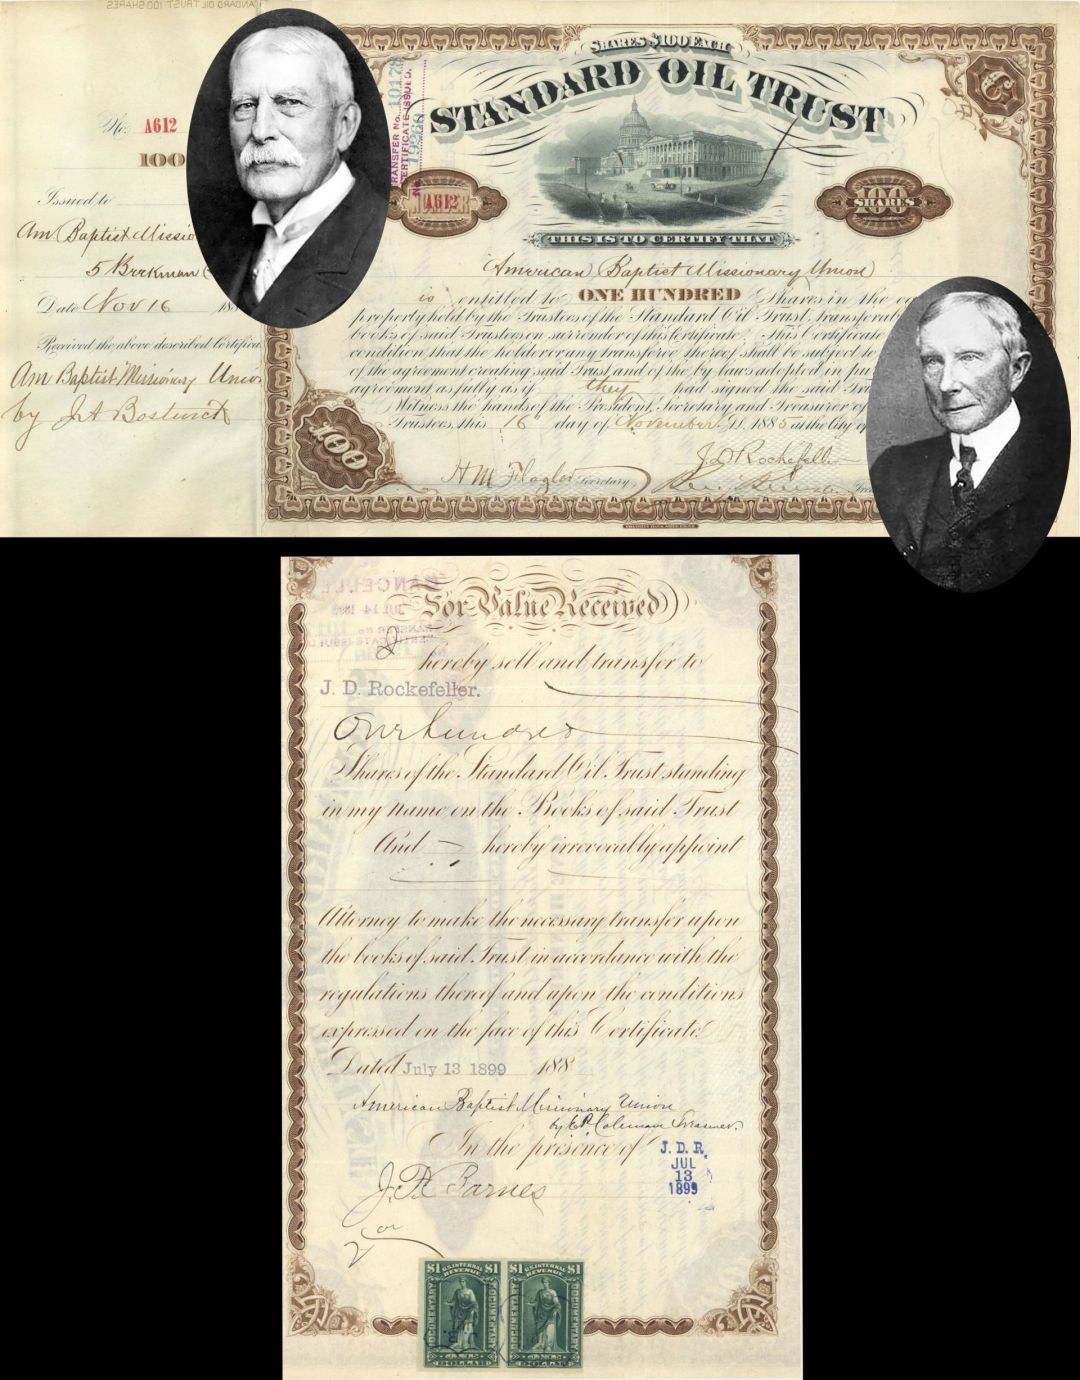 SHARES $100 EACH
STANDARD OIL TRUST
No. A612
100
TRANSFER No. 10178
CERTIFICATE ISSUED.
No.
A612
100
SHARES
THIS IS TO CERTIFY THAT
Issued to
Am Baptist Missio
5 Beekman
Date Nov 16 18
Received the above described Certifica
Am Baptist Missionary Union
by J A Bostwick
American Baptist Missionary Union
is entitled to ONE HUNDRED Shares in the
property held by the Trustees of the Standard Oil Trust, transferab
books of said Trustees on surrender of this Certificate. This Certificate
condition that the holder or any transferee thereof shall be subject to
of the agreement creating said Trust and of the by-laws adopted in pu
agreement as fully as if they had signed the said Tru
Witness the hands of the President, Secretary and Treasurer of
Trustees, this 16 day of November A.D. 1885 at the City of
100
J D Rockefeller
H M Flagler Secretary
For Value Received
I hereby sell and transfer to
J. D. Rockefeller.
One hundred
Shares of the Standard Oil Trust standing
in my name on the Books of said Trust
And hereby irrevocably appoint
Attorney to make the necessary transfer upon
the books of said Trust in accordance with the
regulations thereof and upon the conditions
expressed on the face of this Certificate
Dated July 13 1899 188
American Baptist Missionary Union
by E P Coleman Treasurer.
In the presence of
J. D. R.
JUL
13
1899
Barnes
$1 U.S. INTERNAL REVENUE $1
DOCUMENTARY DOCUMENTARY
DOLLAR
$1 U.S. INTERNAL REVENUE $1
DOCUMENTARY DOCUMENTARY
DOLLAR